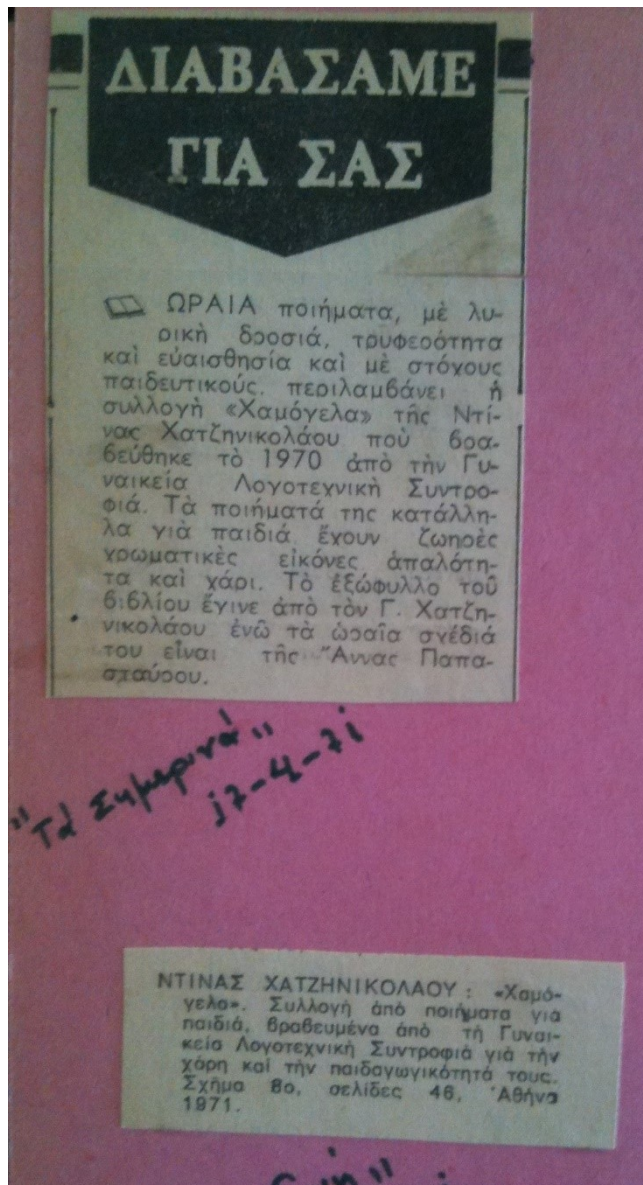 ΔΙΑΒΑΣΑΜΕ
ΓΙΑ ΣΑΣ
ΩΡΑΙΑ ποιήματα, μὲ λυ-
ρικὴ δροσιά, τρυφερότητα
καὶ εὐαισθησία καὶ μὲ στόχους
παιδευτικούς, περιλαμβάνει ἡ
συλλογὴ «Χαμόγελα» τῆς Ντί-
νας Χατζηνικολάου ποὺ βρα-
βεύθηκε τὸ 1970 ἀπὸ τὴν Γυ-
ναικεία Λογοτεχνικὴ Συντρο-
φιά. Τὰ ποιήματά της κατάλλη-
λα γιὰ παιδιά ἔχουν ζωηρὲς
χρωματικὲς εἰκόνες ἁπαλότη-
τα καὶ χάρι. Τὸ ἐξώφυλλο τοῦ
βιβλίου ἔγινε ἀπὸ τὸν Γ. Χατζη-
νικολάου ἐνῶ τὰ ὡραῖα σχέδιά
του εἶναι τῆς Ἄννας Παπα-
σταύρου.
"Τὰ Σημερινά"
17-4-71
ΝΤΙΝΑΣ ΧΑΤΖΗΝΙΚΟΛΑΟΥ: «Χαμό-
γελα». Συλλογὴ ἀπὸ ποιήματα γιὰ
παιδιά, βραβευμένα ἀπὸ τὴ Γυναι-
κεία Λογοτεχνικὴ Συντροφιὰ γιὰ τὴν
χάρη καὶ τὴν παιδαγωγικότητά τους.
Σχῆμα 8ο, σελίδες 46, Ἀθήνα
1971.